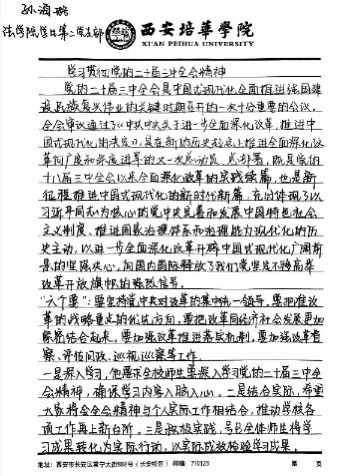 孙海琳
法学院学生第二党支部
西安培華学院
XI'AN PEIHUA UNIVERSITY
学习贯彻党的二十届三中全会精神
党的二十届三中全会是中国式现代化全面推进强国建
设民族复兴伟业的关键时期召开的一次十分重要的会议。
全会审议通过了《中共中央关于进一步全面深化改革、推进中
国式现代化的决定》，是在新的历史起点上推进全面深化改
革向广度和深度进军的又一次总动员、总部署，既是党的
十八届三中全会以来全面深化改革的实践续篇，也是新
征程推进中国式现代化的新时代新篇，充分体现了以
习近平同志为核心的党中央完善和发展中国特色社会
主义制度、推进国家治理体系和治理能力现代化的历
史主动，以进一步全面深化改革开辟中国式现代化广阔前
景的坚强决心，向国内国际释放了我们党坚定不移高举
改革开放旗帜的强烈信号。
"六个要"：要坚持党中央对改革的集中统一领导，要把准改
革的战略重点的优先方向，要把改革同经济社会发展更加
紧密结合起来，要加强改革推进落实机制，要加强改革督
察、评估问效、巡视巡察等工作。
一是深入学习，他要求全校师生要深入学习党的二十届三中全
会精神，确保学习内容入脑入心。二是结合实际，希望
大家将全会精神与个人实际工作相结合，推动学校各
项工作再上新台阶。三是积极实践，号召全体师生将学
习成果转化为实际行动，以实际成效检验学习成果。
地址：西安市长安区常宁大街888号（长安校区） 邮编：710125 第 页